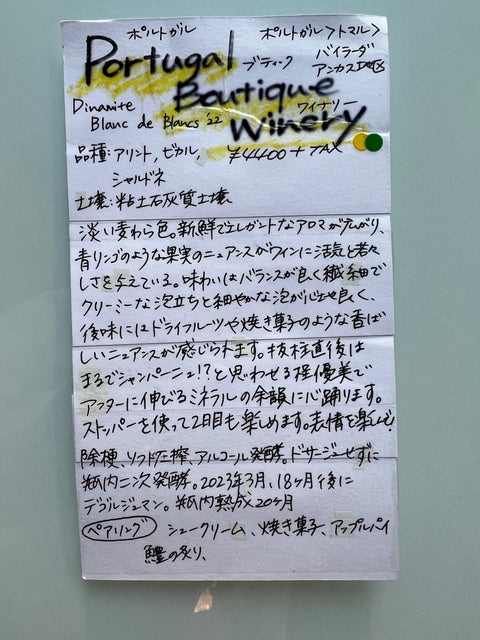 ポルトガル ポルトガル>トマル>
Portugal ブティック バイラーダ
Boutique アンカス地区
Dinamite ワイナリー
Blanc de Blancs '22 Winery
品種:アリント, ビカル, ¥4400+TAX
シャルドネ
土壌:粘土石灰質土壌
淡い麦わら色。新鮮でエレガントなアロマが広がり、
青リンゴのような果実のニュアンスがワインに活気と若々
しさを与えている。味わいはバランスが良く繊細で
クリーミーな泡立ちと細やかな泡が心地良く、
後味にはドライフルーツや焼き菓子のような香ば
しいニュアンスが感じられます。抜栓直後は
まるでシャンパーニュ!?と思わせる程優美で
アフターに伸びるミネラルの余韻に心踊ります。
ストッパーを使って2日目も楽しめます。表情を楽しんで!
除梗、ソフト圧搾、アルコール発酵。ドサージュせずに
瓶内二次発酵。2023年3月、18ヶ月後に
デゴルジュマン。瓶内熟成20ヶ月
ペアリング シュークリーム、焼き菓子、アップルパイ
の炙り、